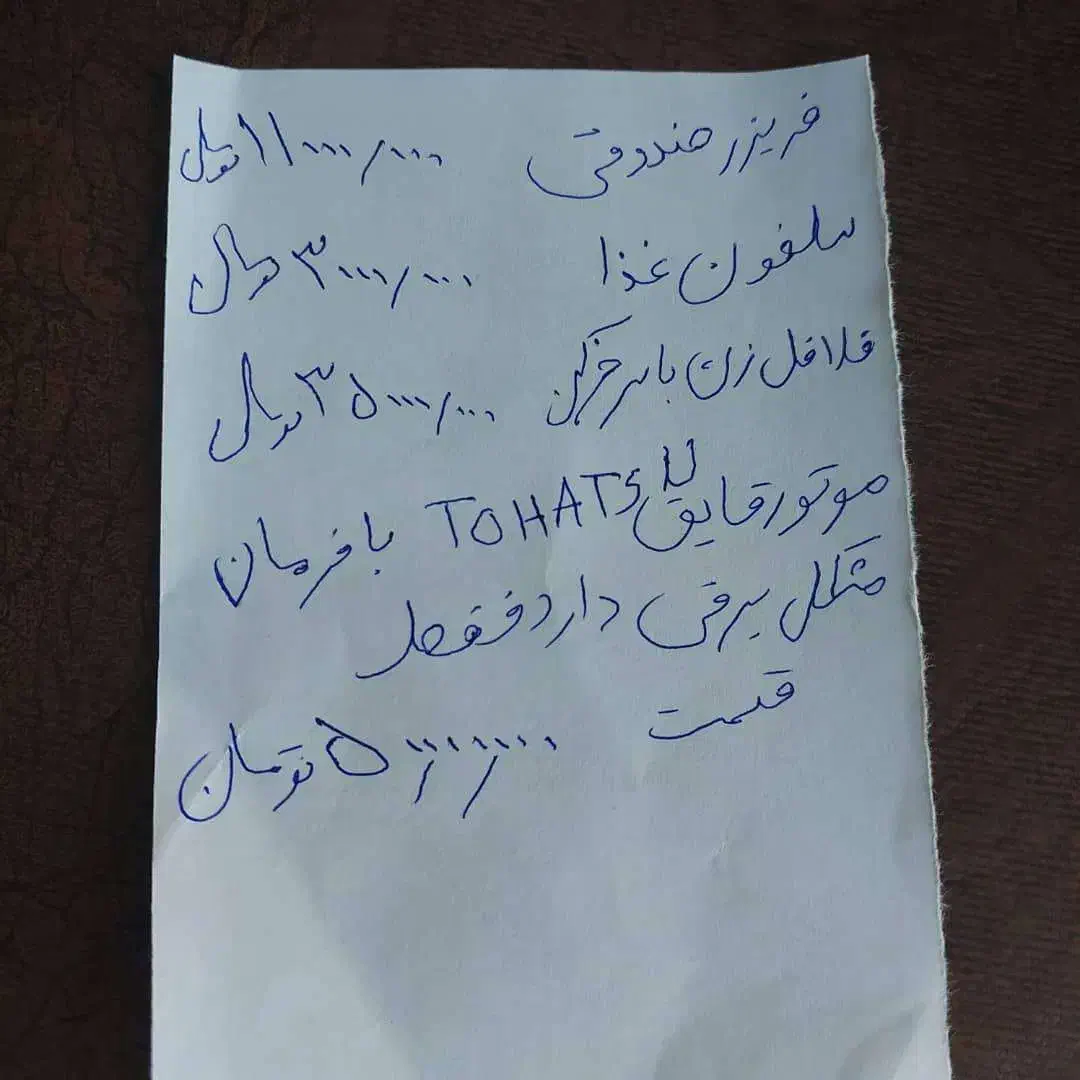 فریزر صندوقی ۱۱۰۰۰۰/۰۰۰ تومان
سلفون غذا ۳۰۰۰/۰۰۰ تومان
فلافل زن با سرخ کن ۳۵۰۰۰/۰۰۰ تومان
موتور قایق TOHATSU با فرمان
مشکل برقی دارد فقط
قیمت ۵۰/۰۰۰/۰۰۰ تومان